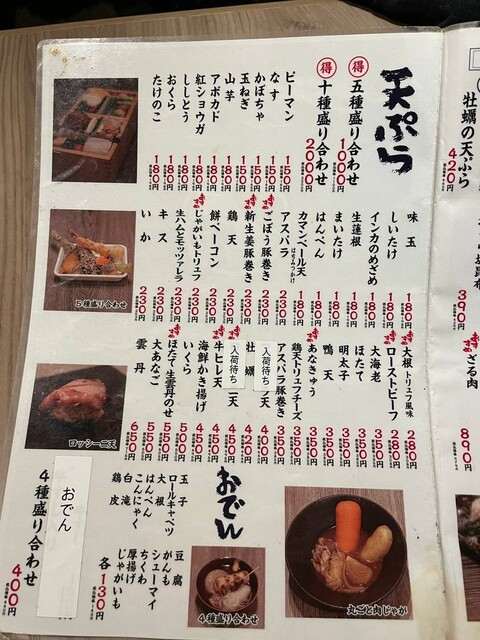 天ぷら
得 五種盛り合わせ 1000円
得 十種盛り合わせ 2000円
ピーマン 150円
なす 150円
かぼちゃ 150円
玉ねぎ 150円
山芋 180円
アボカド 180円
紅ショウガ 180円
ししとう 180円
おくら 180円
たけのこ 180円
味玉 180円
しいたけ 180円
インカのめざめ 180円
生蓮根 180円
まいたけ 180円
はんぺん 180円
カマンベール天 はちみつがけ 180円
アスパラ 230円
ごぼう豚巻き 230円
新生姜豚巻き 230円
鶏天 230円
餅ベーコン 230円
じゃがいもトリュフ 230円
生ハムとモッツァレラ 230円
キス 230円
いか 230円
5種盛り合わせ
大根トリュフ風味 280円
ローストビーフ 280円
大海老
ほたて
明太子
鴨天
あなきゅう
鶏天トリュフチーズ
アスパラ豚巻き
入荷待ち
牡蠣
入荷待ち
牛ヒレ天
海鮮かき揚げ
いくら
ほたて生雲丹のせ
大あなご
雲丹 650円
ロッシーニ天
おでん
玉子
ロールキャベツ
大根
はんぺん
こんにゃく
白滝
鶏皮
豆腐
がんも
シューマイ
ちくわ
厚揚げ
じゃがいも
各130円
おでん
4種盛り合わせ 400円
4種盛り合わせ
丸ごと肉じゃが
牡蠣の天ぷら 420円
390円
ざる肉
890円